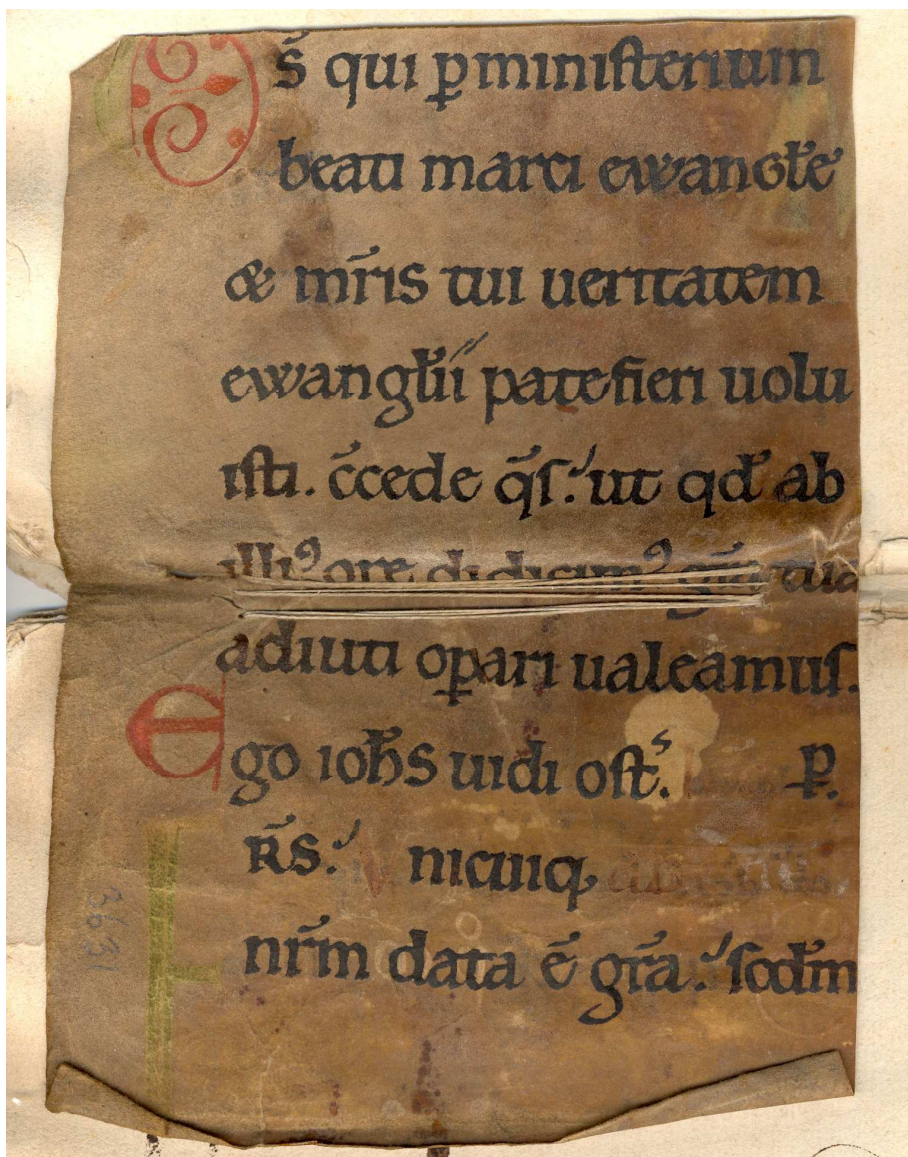 Ds̄ qui ꝑministerium
beati marci ewangłe
& mr̄is tui ueritatem
ewangłii patefieri uolu
isti. c̄cede q̄s. ut qđ ab
illiꝰ ore didicimꝰ gr̄a tua
adiuti oꝑari ualeamus.
Ego ioħs uidi ost. P.
R̄s. V nicuiq,
nr̄m data ē gr̄a. sođm
3631